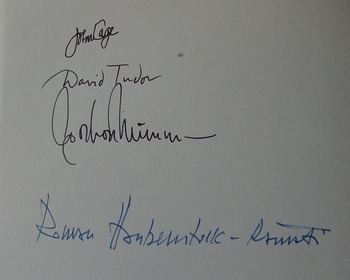 John Cage
David Tudor
Gordon Mumma
Roman Haubenstock-Ramati